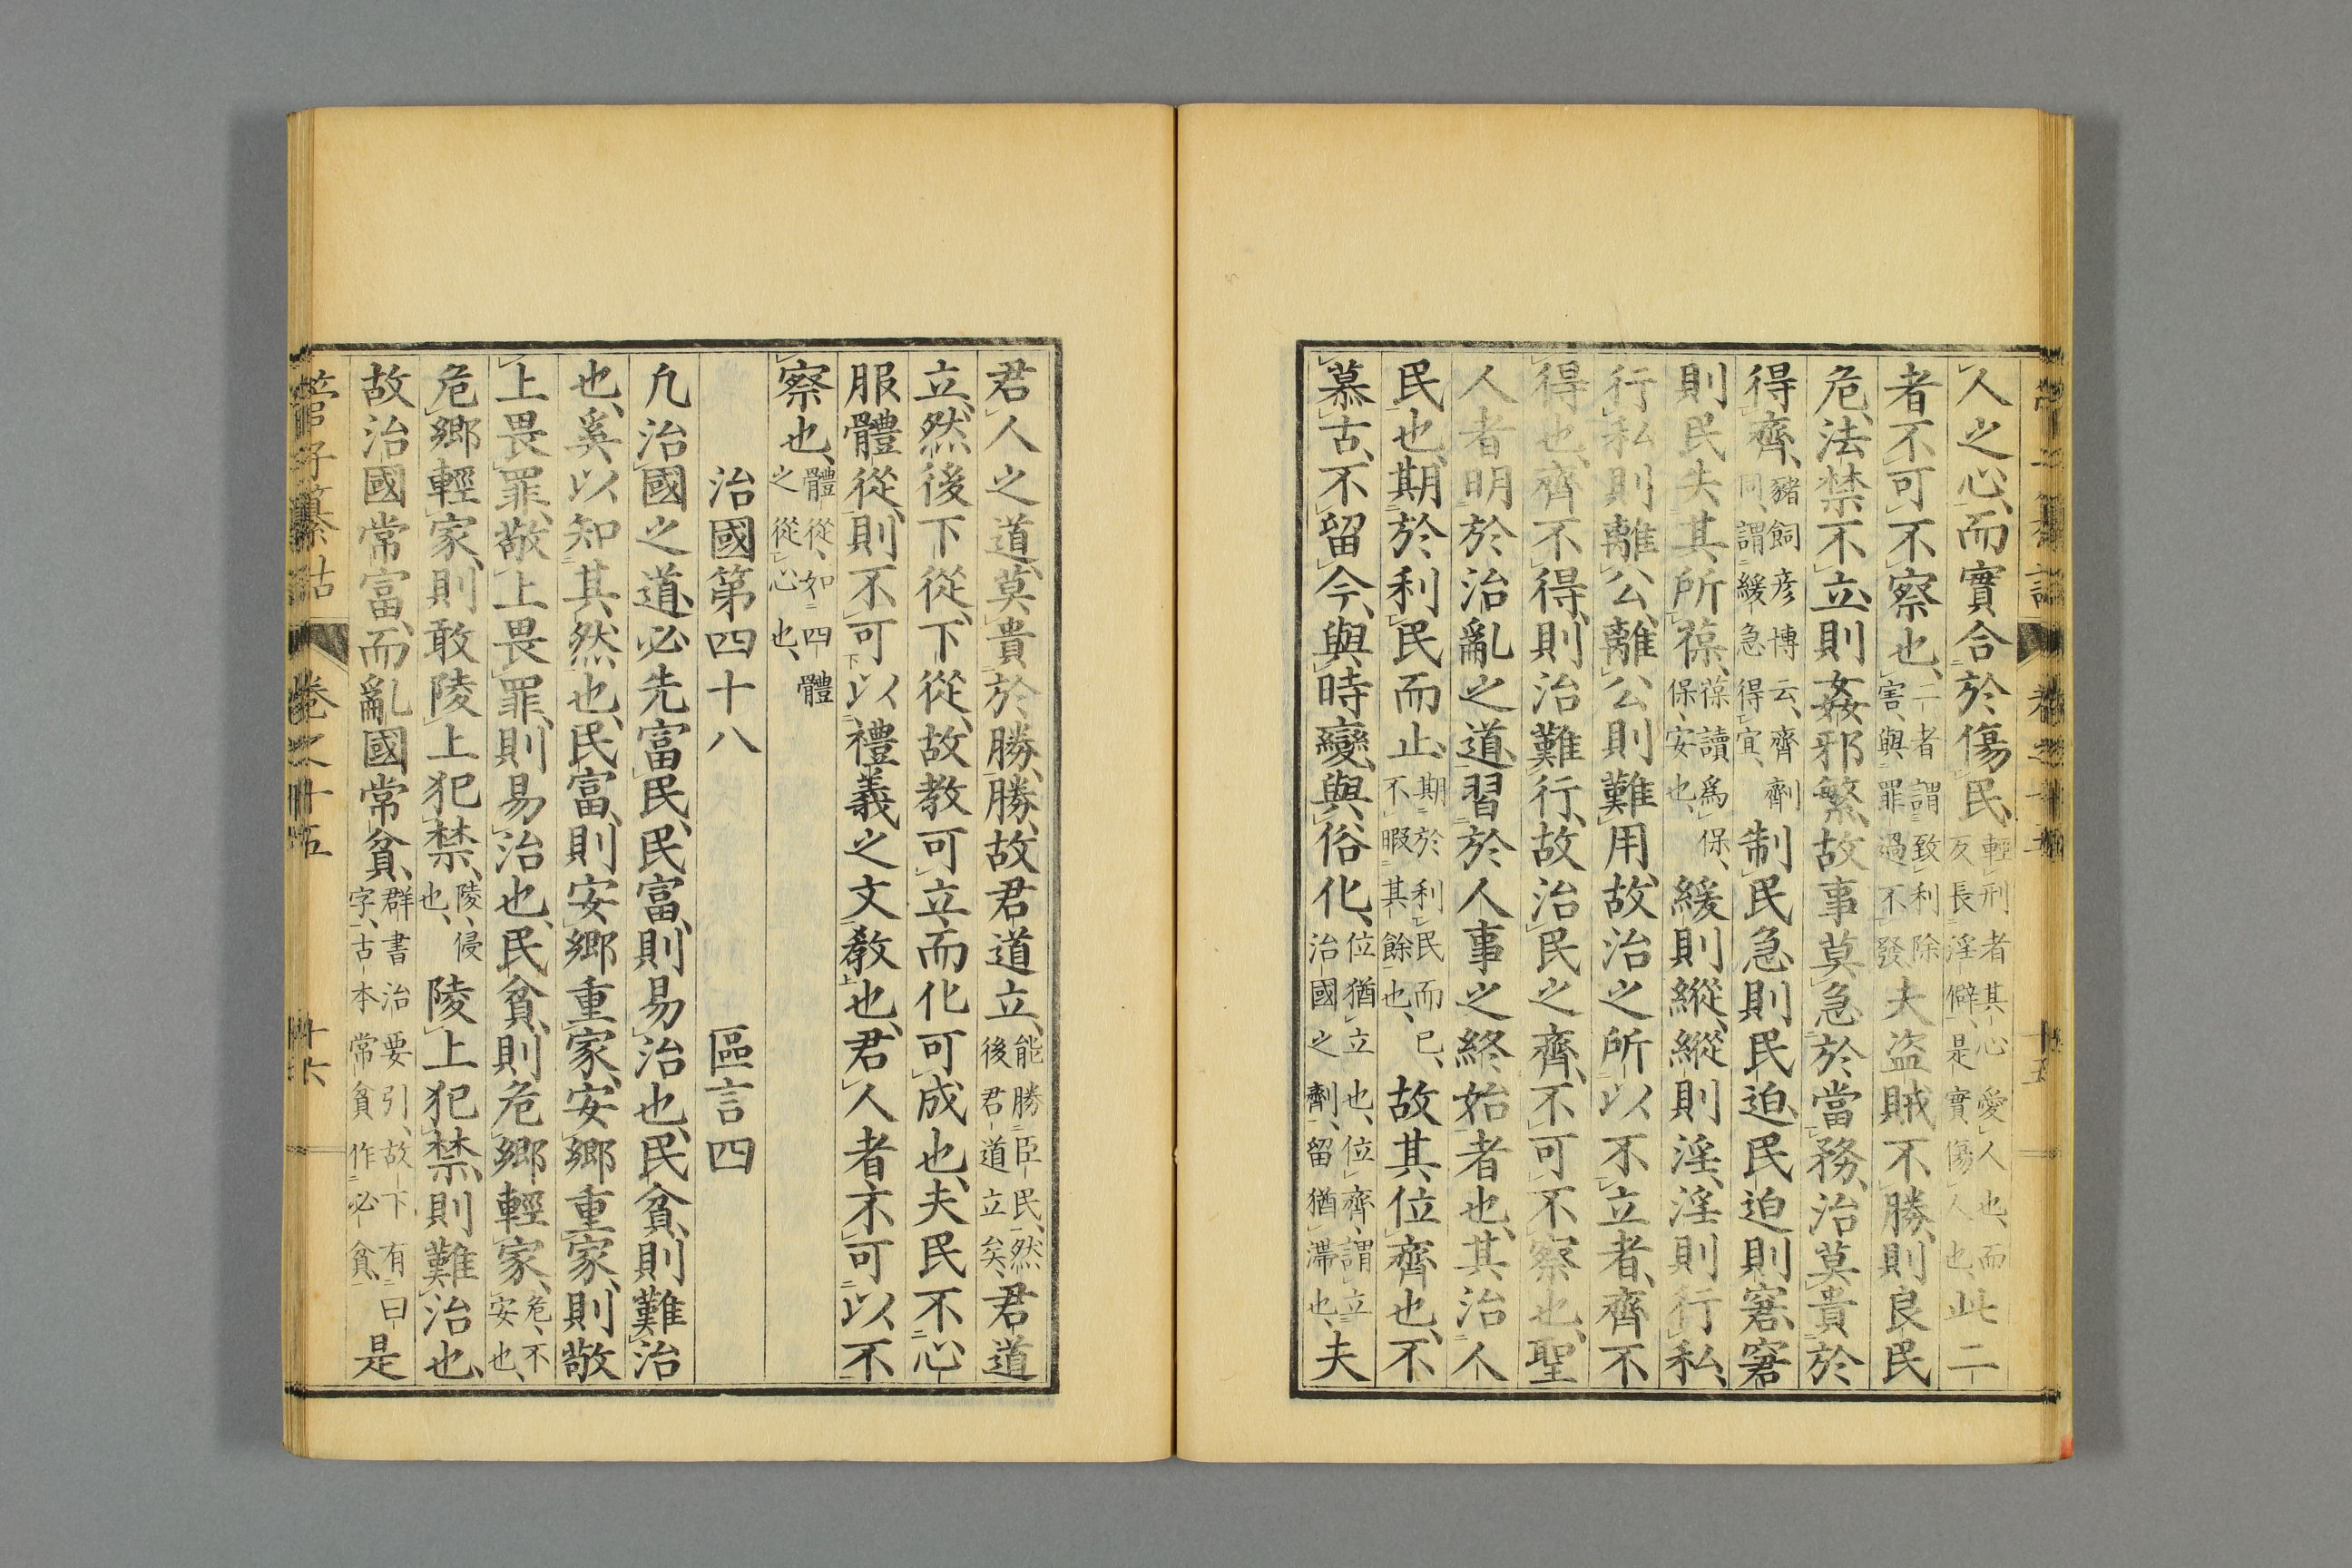 人之心、而實合於傷民、輕刑者其心愛人也、而反長淫僻、是實傷人也、此二
者不可不察也、二者謂致利除害、與罪過不發夫盜賊不勝、則良民
危、法禁不立、則姦邪繁、故事莫急於當務、治莫貴於
得齊、豬飼彥博云、齊劑同、謂緩急得宜、制民急則民迫、民迫則窘、窘
則民失其所葆、葆讀爲保、保、安也、緩則縱、縱則淫、淫則行私、
行私則離公、離公則難用、故治之所以不立者、齊不
得也、齊不得、則治難行、故治民之齊、不可不察也、聖
人者、明於治亂之道、習於人事之終始者也、其治人
民也、期於利民而止、期於利民而已、不暇其餘也、故其位齊也、不
慕古、不留今、與時變、與俗化、位猶立也、位齊、謂立治國之劑、留猶滯也、夫
君人之道、莫貴於勝、勝、故君道立、能勝臣民、然後君道立矣、君道
立、然後下從、下從、故教可立、而化可成也、夫民不心
服體從、則不可以禮義之文教也、君人者不可以不
察也、體從、如四體之從心也、
治國第四十八　區言四
凡治國之道、必先富民、民富、則易治也、民貧、則難治
也、奚以知其然也、民富、則安鄉重家、安鄉重家、則敬
上畏罪、敬上畏罪、則易治也、民貧、則危鄉輕家、危、不安也、
危鄉輕家、則敢陵上犯禁、陵、侵也、陵上犯禁、則難治也、
故治國常富、而亂國常貧、群書治要引、故下有曰字、古本常貧作必貧、是
管子纂詁　卷之十五　十六